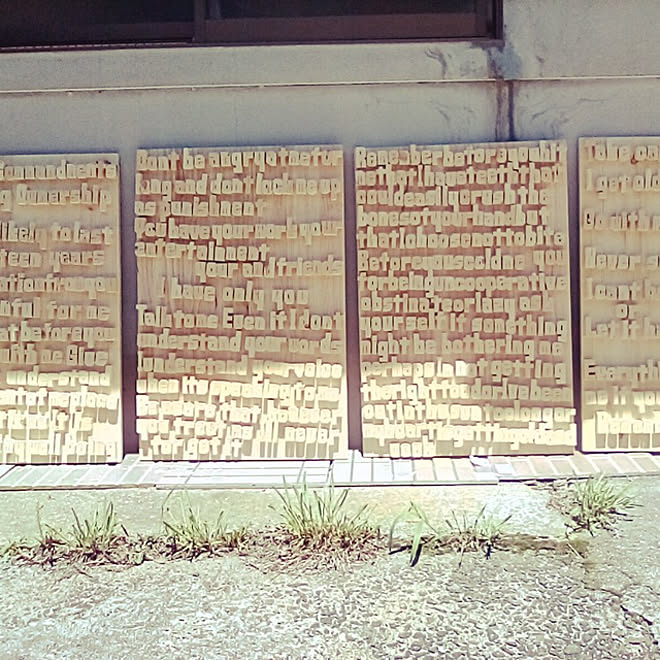 Commandments
Ownership
likely to last
teen years
ation from you
ful for me
before you
with me Give
understand
Dont be angry at me for
long and dont lock me up
as Punishment
you have your work your
entertainment
your and friends
I have only you
Talk to me Even if I dont
understand your words
I understand your voice
when its speaking to me
Be aware that however
you treat me Ill never
forget it
Remember before you hit
me that I have teeth that
could easily crush the
bones of your hand but
that I choose not to bite
Before you scold me
for being uncooperative
obstinate or lazy ask
yourself if something
might be bothering me
perhaps Im not getting
the right food or Ive been
out in the sun too long or
my heart is getting old or
weak
Take
I get old
Go with
Never
I cant be
or
Let it ha
Everything
me if you
Remem